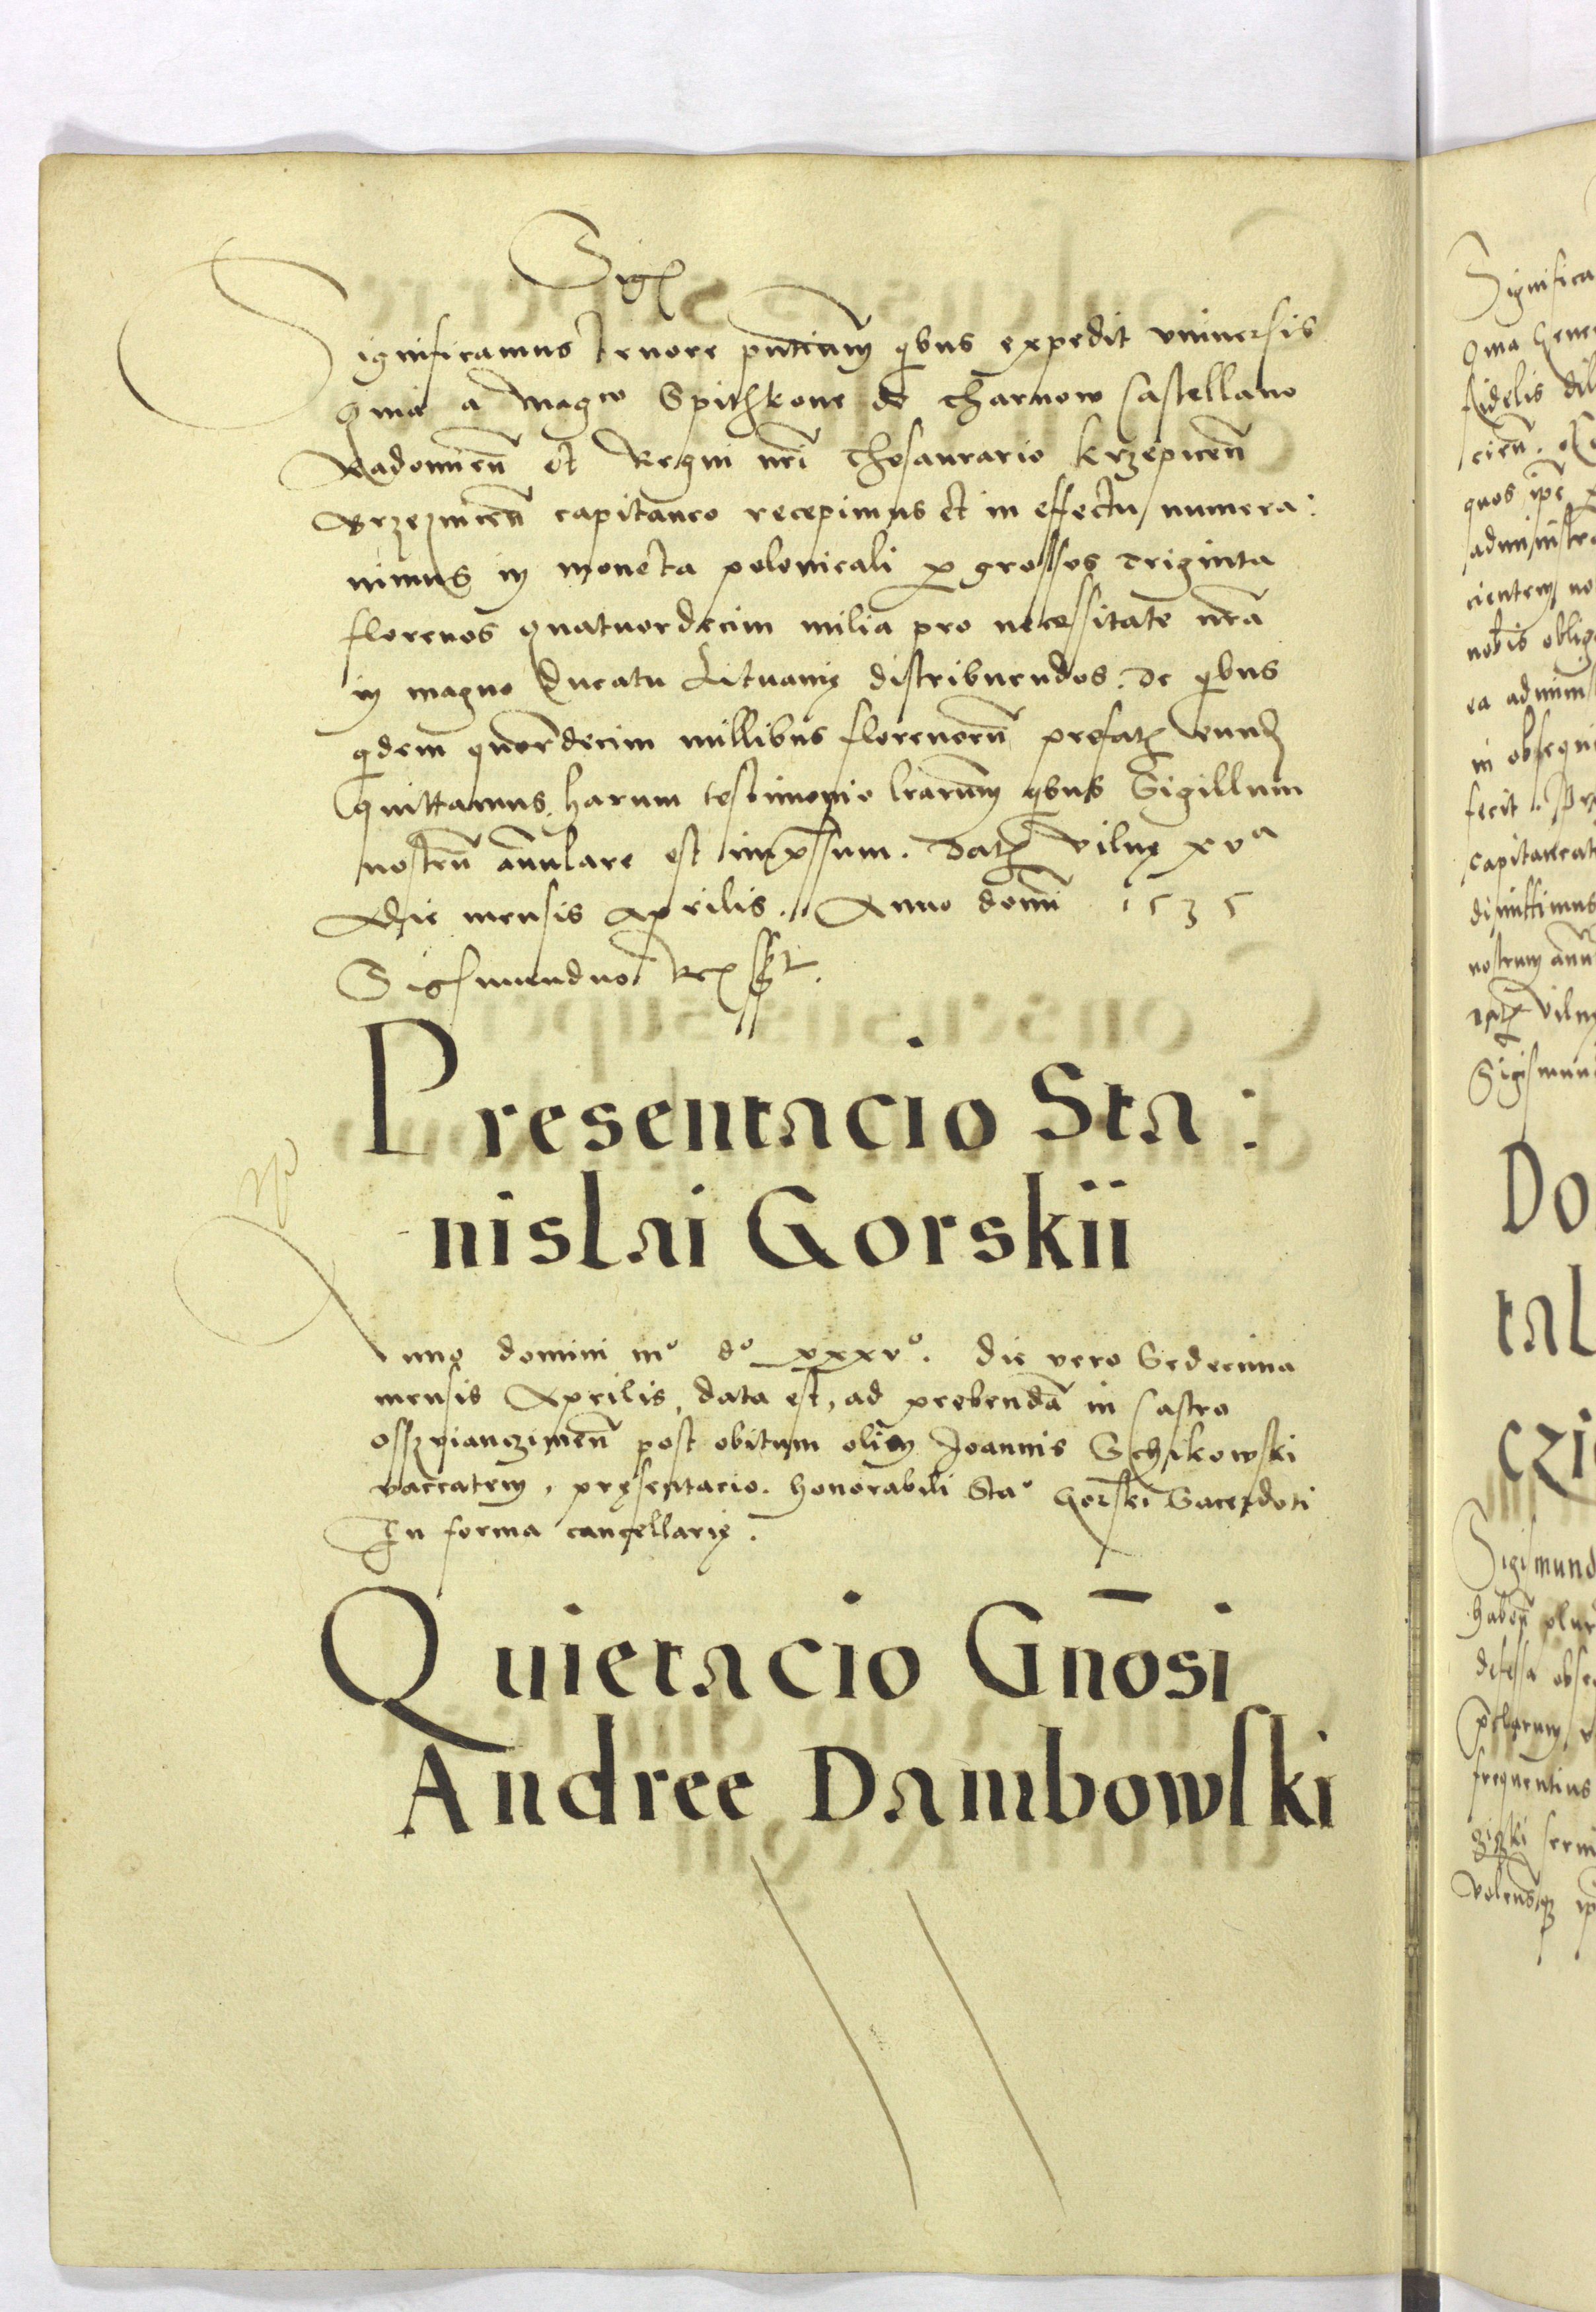 Sig
Significamus tenore pntium qbus expedit universis
Quia a Mag^co Spithkone de Tharnow Castellano
Radomien et Regni nri Thesaurario Krzepicen
Brzeznicen capitaneo recepimus et in effectu numera:
vimus in moneta polonicali per grossos triginta
florenos quatuordecim milia pro necessitate nra
in magno Ducatu Lituanię distribuendos. de qbus
qdem quatuordecim millibus florenorum prefat eund
quittamus harum testimonio lrarum qbus Sigillum
nostru annulare est impssum. Dat Vilnę xv^a
Die mensis Aprilis. Anno domi 1535
Sigismundus Rex sst.
Presentacio Sta:
nislai Gorskii
Anno domini m° d° xxxv°. die vero Sedecima
mensis Aprilis, data est, ad prebenda in Castro
osszwianczimen post obitum olim Joannis Schikowski
vaccatem, pręsentacio. honorabili Sta° Gorski Sacerdoti
In forma cancellarię.
Quietacio Gnosi
Andree Dambowski
Significa
fidelis dil
cien.
quos ipe
administra
cientem no
nobis oblig
ea admin
in obsequi
fecit.
capitaneat
dimittimus
nostrum annu
Dat Viln
Sigismun
Do
tal
czi
Sigismund
haben plur
frequentius